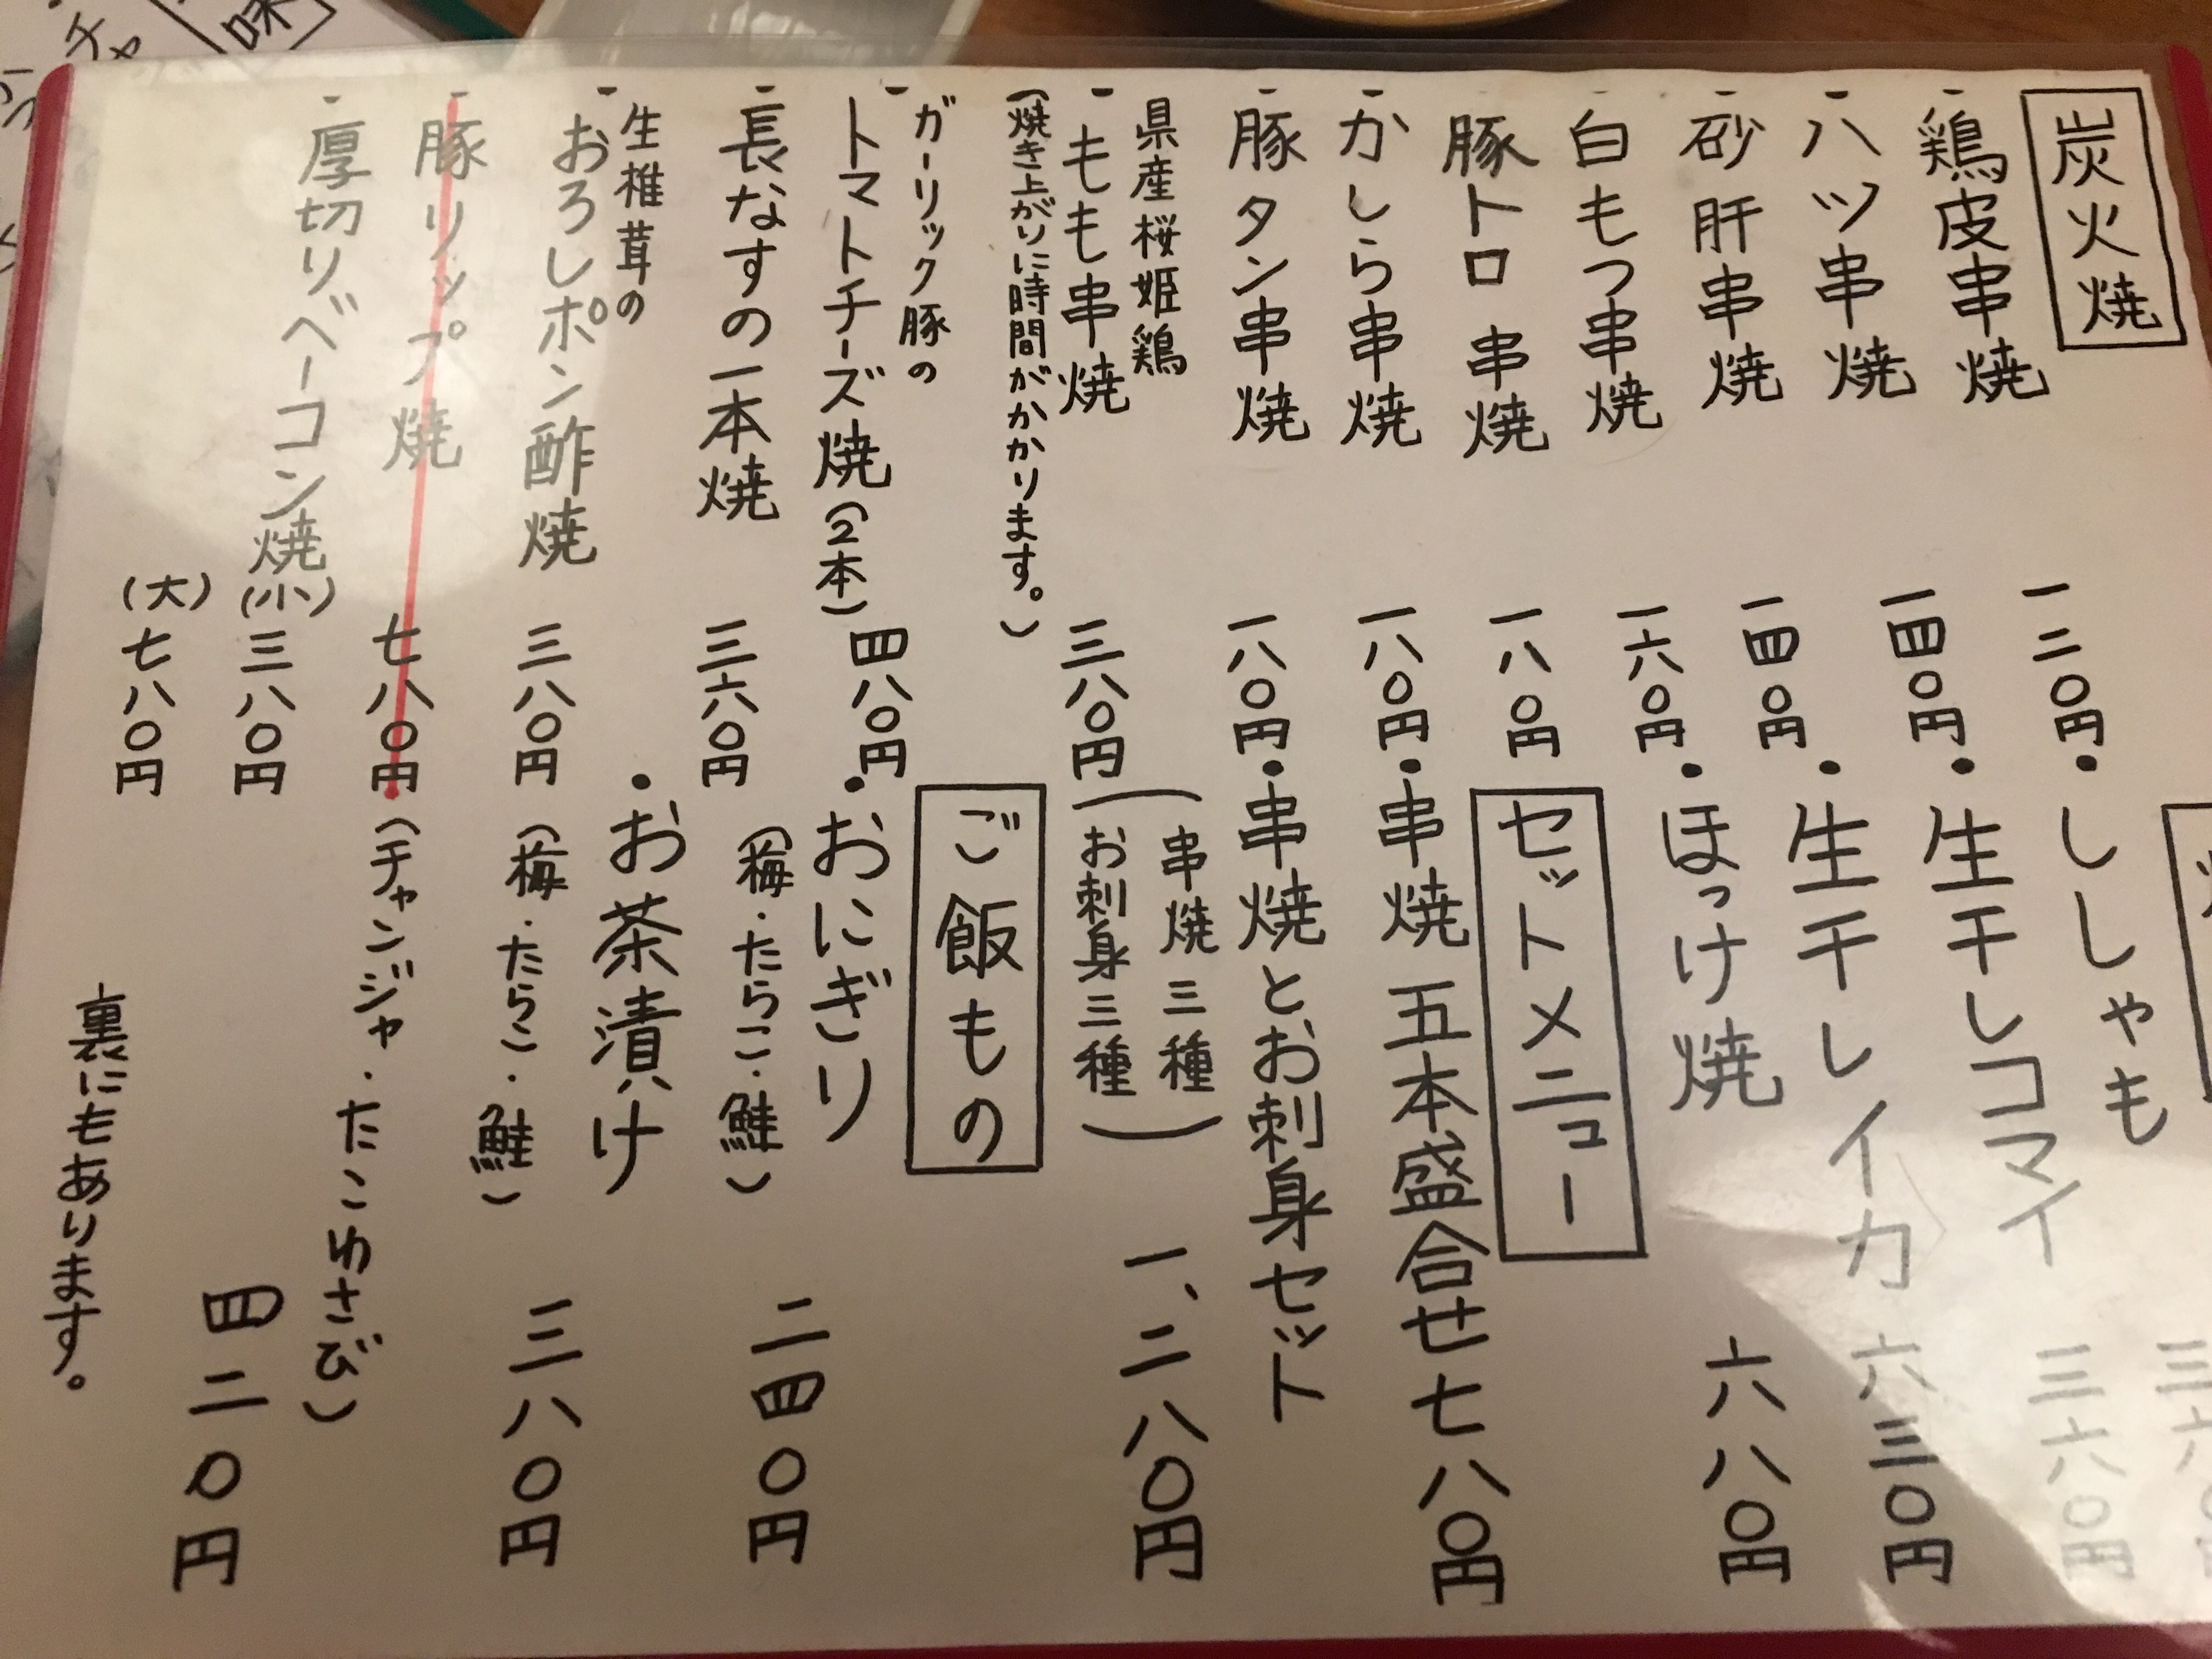 炭火焼
・鶏皮串焼 一二〇円
・ハツ串焼 一四〇円
・砂肝串焼 一四〇円
・白もつ串焼 一六〇円
・豚トロ串焼 一八〇円
・かしら串焼 一八〇円
・豚タン串焼 一八〇円
県産桜姫鶏
・もも串焼 三八〇円
(焼き上がりに時間がかかります。)
ガーリック豚の
・トマトチーズ焼(2本) 四八〇円
・長なすの一本焼 三六〇円
生椎茸の
・おろしポン酢焼 三八〇円
・豚リップ焼 七八〇円
・厚切りベーコン焼(小) 三八〇円
(大) 七八〇円
・ししゃも
・生干しコマイ 三六〇円
・生干しイカ 六三〇円
・ほっけ焼 六八〇円
セットメニュー
・串焼五本盛合せ 七八〇円
・串焼とお刺身セット
(串焼三種
お刺身三種) 一、二八〇円
ご飯もの
・おにぎり
(梅・たらこ・鮭) 二四〇円
・お茶漬け
(梅・たらこ・鮭) 三八〇円
(チャンジャ・たこわさび)
四二〇円
裏にもあります。
味
チャ